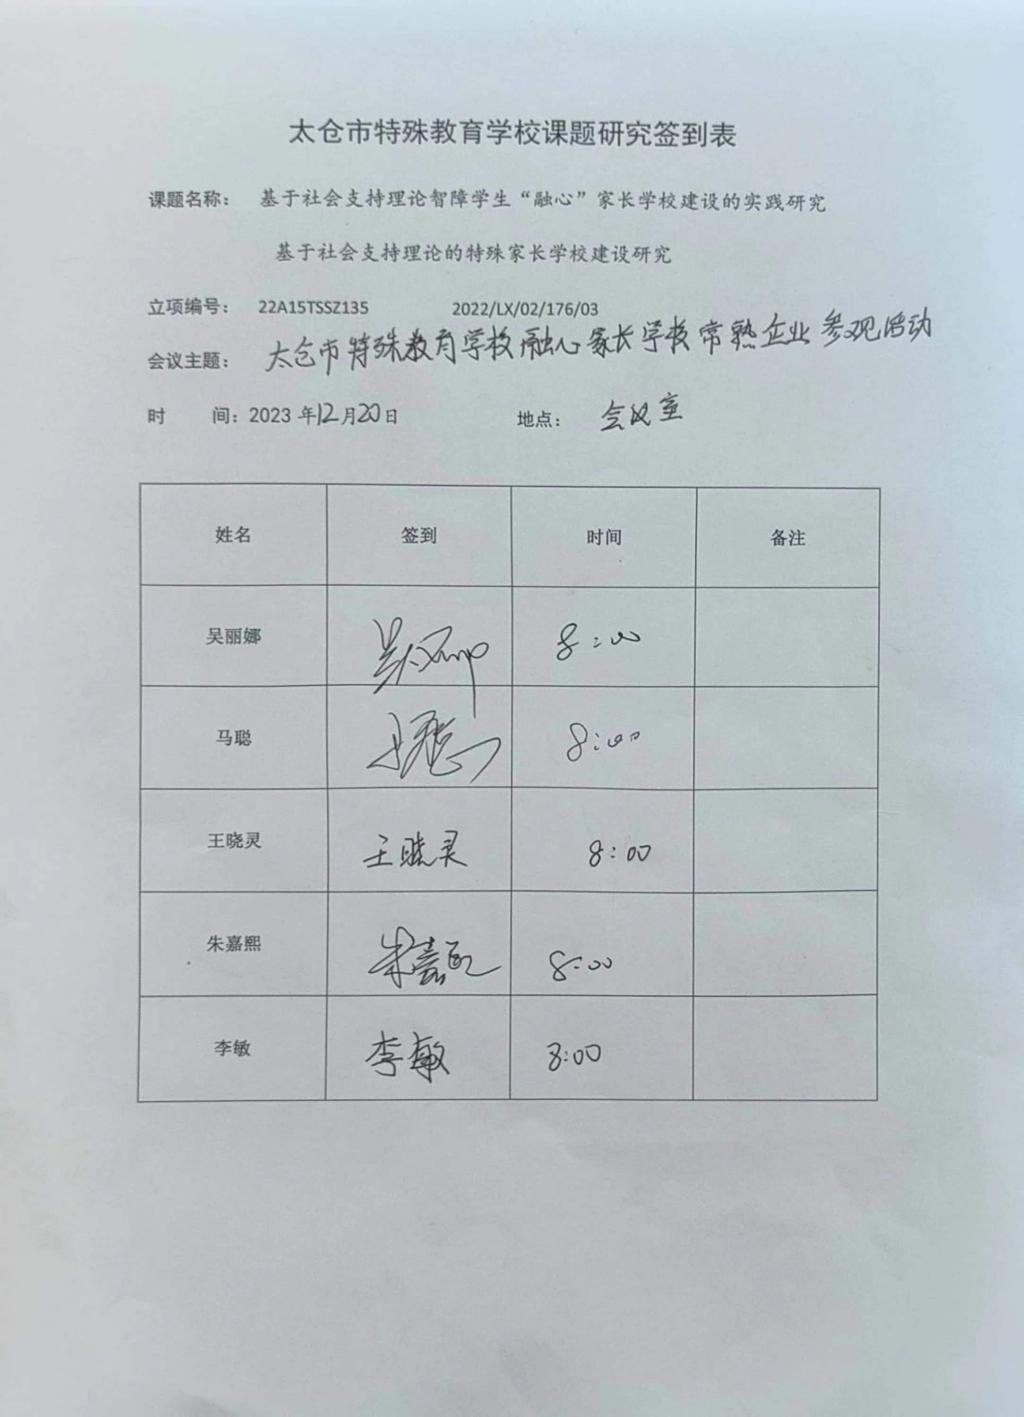 太仓市特殊教育学校课题研究签到表
课题名称： 基于社会支持理论智障学生“融心”家长学校建设的实践研究
基于社会支持理论的特殊家长学校建设研究
立项编号： 22A15TSSZ135 2022/LX/02/176/03
会议主题： 太仓市特殊教育学校融心家长学校常熟企业参观活动
时 间：2023年12月20日 地点： 会议室
姓名 签到 时间 备注
吴丽娜 吴丽娜 8:00
马聪 马聪 8:00
王晓灵 王晓灵 8:00
朱嘉熙 朱嘉熙 8:00
李敏 李敏 8:00